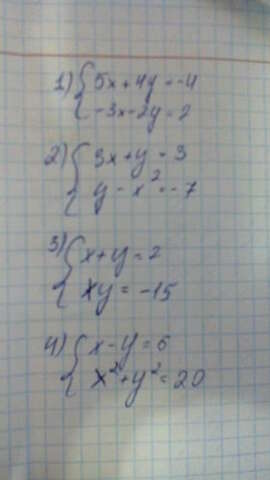 1) { 5x + 4y = -4
-3x - 2y = 2
2) { 3x + y = 3
y - x² = -7
3) { x + y = 2
xy = -15
4) { x - y = 6
x² + y² = 20